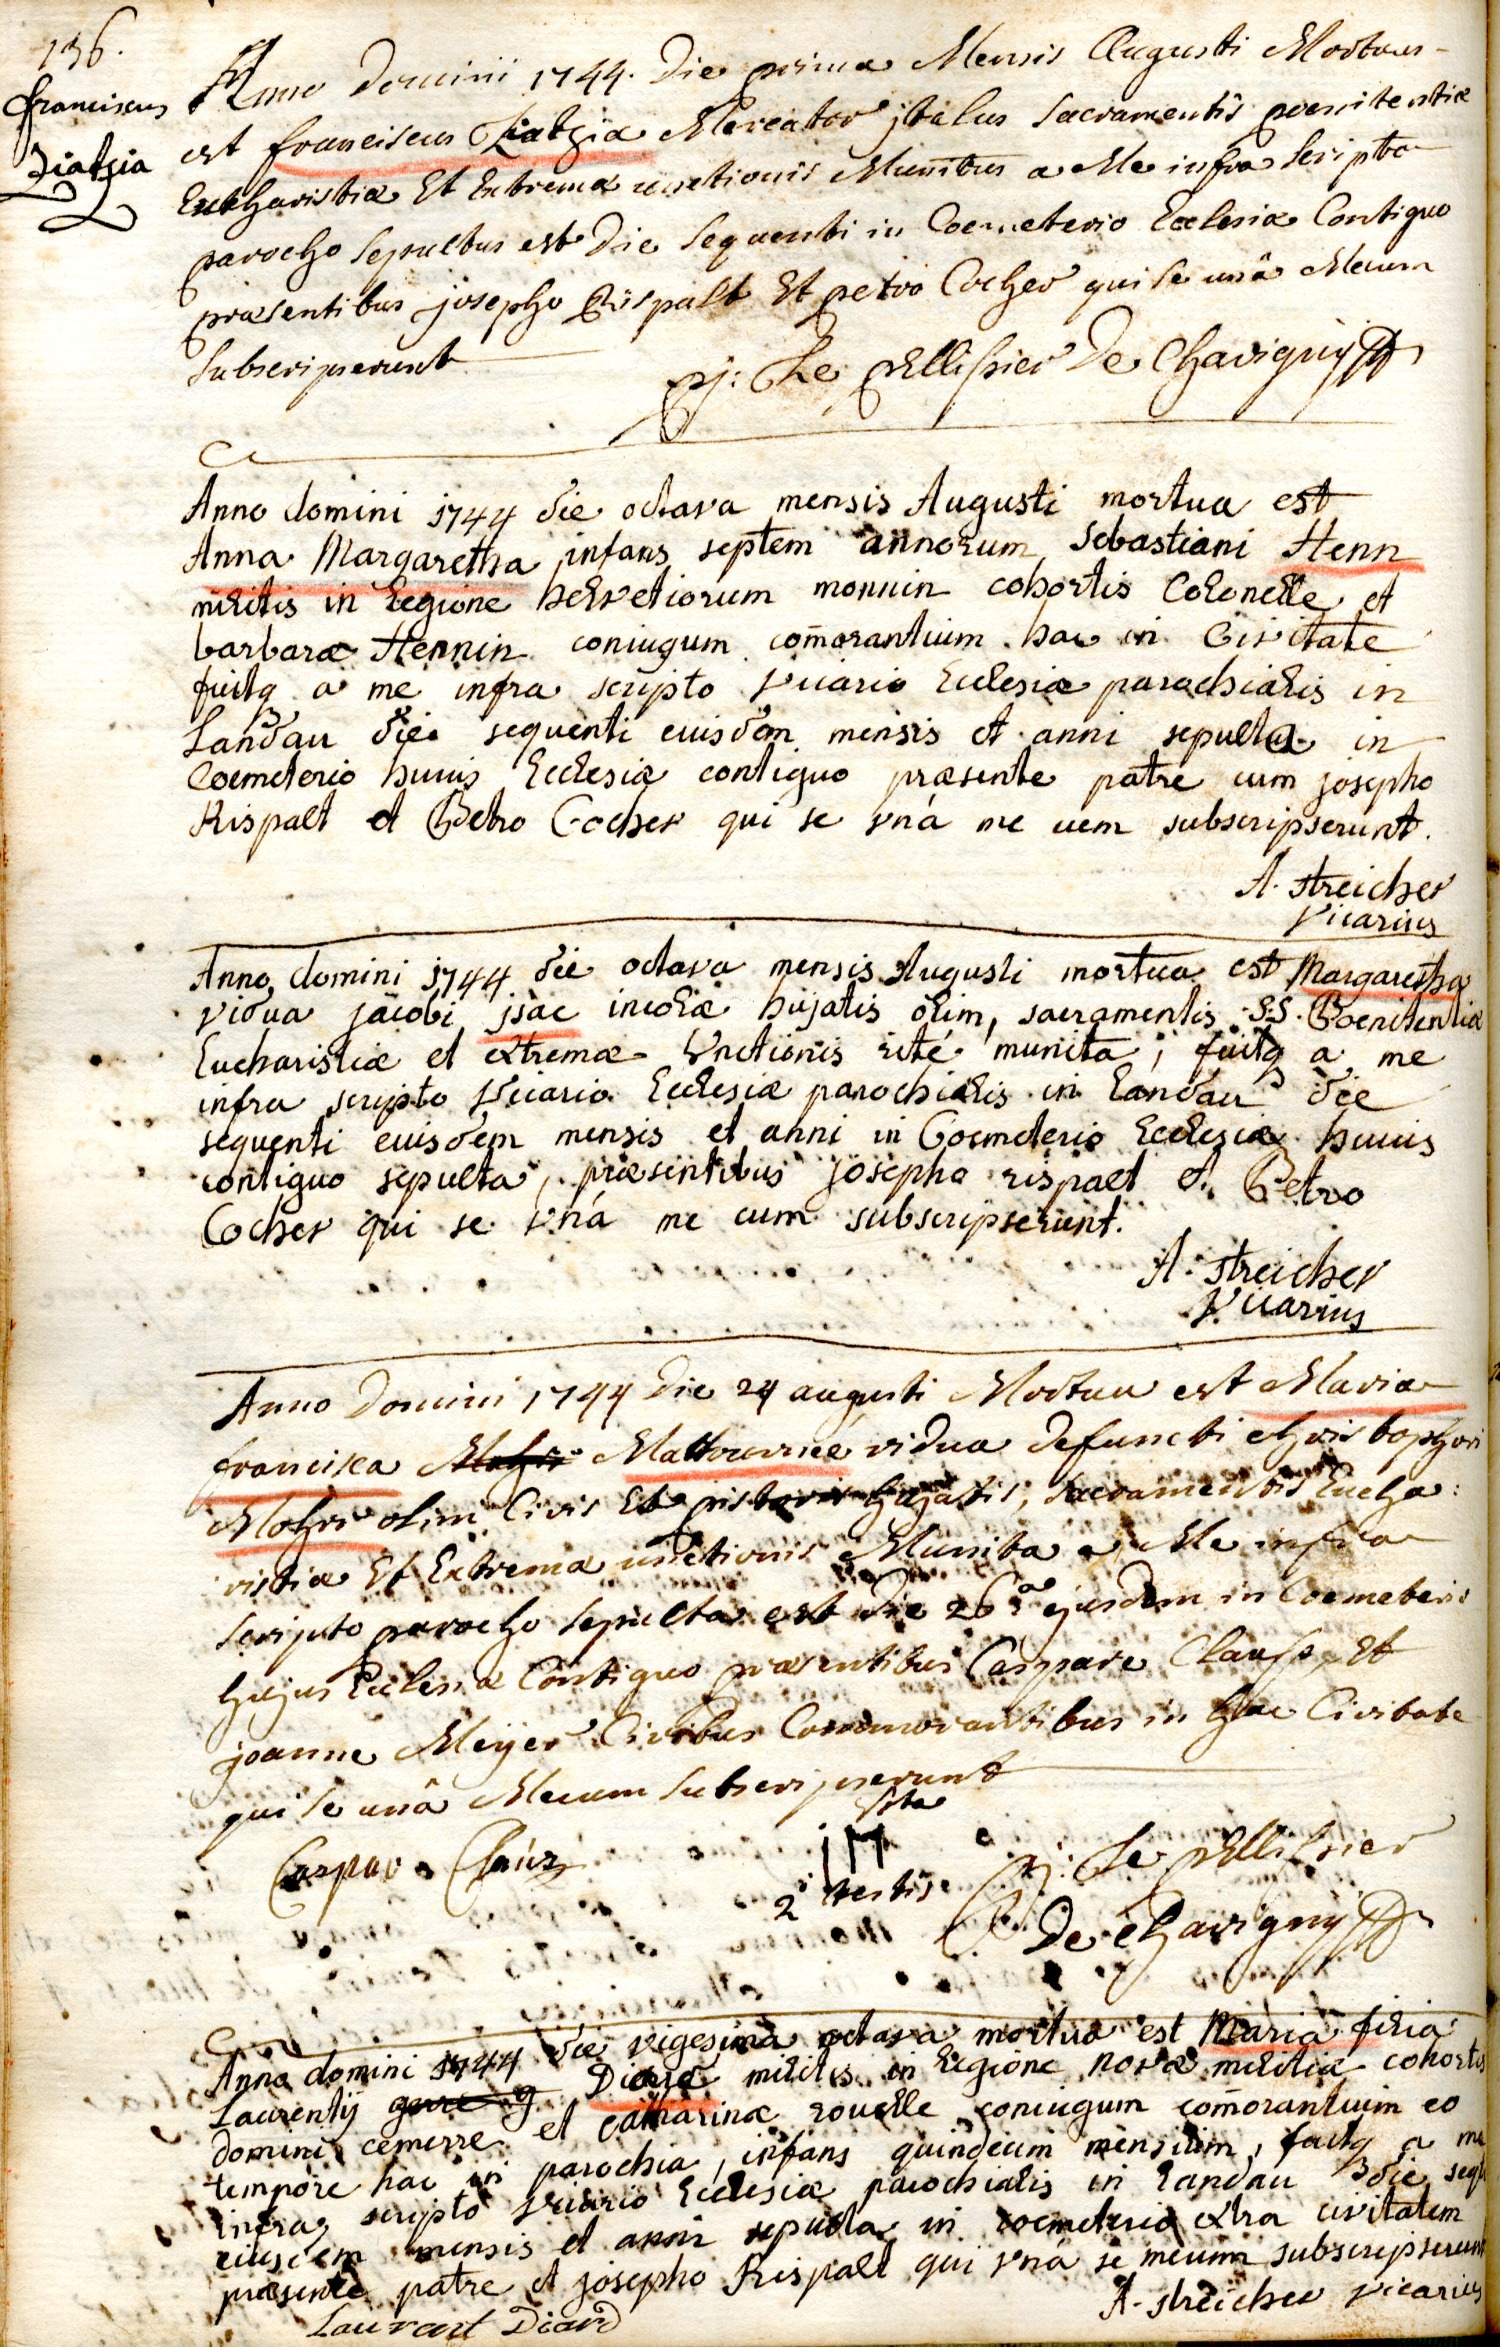 136.
franciscus
Ziatzia
Anno Domini 1744. Die prima Mensis Augusti Mortuus
est franciscus Ziatzia Mercator jtalus Sacramentis poenitentiæ
Eucharistiæ Et Extremæ unctionis Munitus a Me infra Scripto
parocho Sepultus est Die Sequenti in Coemeterio Ecclesiæ Contiguo
præsentibus josepho Rispalt Et petro Cocher qui Se unâ Mecum
Subscripserunt
pj: Le pellissier De Chavigny
Anno domini 1744 die octava mensis Augusti mortua est
Anna Margaretha infans septem annorum Sebastiani Henn
militis in Legione helvetiorum monnin cohortis Colonelle et
barbaræ Hennin coniugum com̄orantium hac in Civitate
fuitq a me infra scripto Vicario Ecclesiæ parochialis in
Landau die sequenti eiusdem mensis et anni sepulta in
Coemeterio huius Ecclesiæ contiguo præsente patre cum josepho
Rispalt et Petro Cocher qui se vná me cum subscripserunt.
A. Streicher
Vicarius
Anno domini 1744 die octava mensis Augusti mortua est Margaretha
vidua jacobi jsac incolæ hujatis olim, sacramentis S.S. Poenitentiæ
Eucharistiæ et extremæ Vnctionis rité munita, fuitq a me
infra scripto Vicario Ecclesiæ parochialis in Landau die
sequenti eiusdem mensis et anni in Coemeterio Ecclesiæ huius
contiguo sepulta, præsentibus josepho rispalt et Petro
Cocher qui se vná me cum subscripserunt.
A. Streicher
Vicarius
Anno Domini 1744 Die 24 augusti Mortua est Maria
francisca Mohr Mattournée vidua defuncti christophori
Mohr olim Civis Et pistoris hujatis, Sacramentis Eucha:
ristiæ Et Extremæ unctionis Munita a Me infra
Scripto parocho Sepulta est Die 26a ejusdem in Coemeterio
hujus Ecclesiæ Contiguo præsentibus Caspare Clauss Et
joanne Meyer Civibus Commorantibus in hac Civitate
qui Se unâ Mecum Subscripserunt
Caspar Clauß
jM
2 testis
pj: Le pellissier
De chavigny
Anno domini 1744 die vigesima octava mortua est Maria filia
Laurentij Diard militis in Legione novæ militiæ cohortis
domini cemerre et Catharinæ rouelle coniugum com̄orantium eo
tempore hac in parochia, infans quindecim mensium, fuitq a me
infra scripto Vicario Ecclesiæ parochialis in Landau die sequ
eiusdem mensis et anni sepulta in coemeterio extra civitatem
præsente patre et josepho Rispalt qui vná se mecum subscripserunt
A. Streicher Vicarius
Laurant Diard